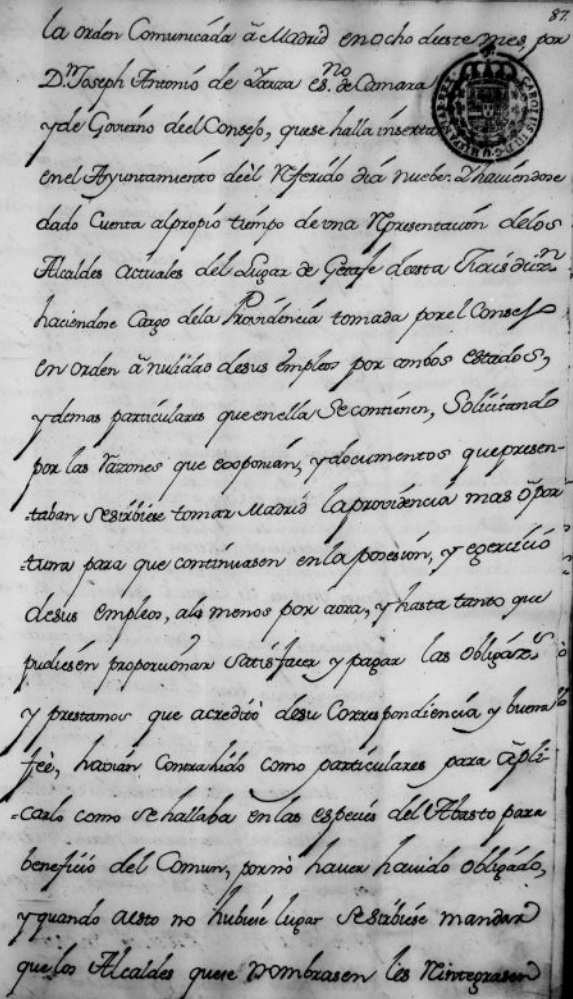 87.
la orden Comunicáda â Madrid en ocho deeste mes, por
D.n Joseph Antonío de Yarza es.no de Camara
y de Govierno deel Consejo, que se halla inserta
en el Ayuntamiento deel Referído día nuebe. Y haviéndose
dado Cuenta al propio tiémpo de vna Representacion delos
Alcaldes actuales del Lugar de Getafe deesta Jurisdiz.n
haciendose Cargo dela Providéncia tomada por el Consejo
en orden â nulidad desus émpleos por ambos estados,
y demas particulares que en ella Se contienen, Solicitando
por las razones que exponian, y documentos que presen-
-taban se sirbiese tomar Madrid la providéncia mas opor-
=tuna para que contínuasen en la posesión, y egercício
desus empleos, alo menos por aora, y hasta tanto que
pudiesén proporcionar Satisfacer y pagar las obligáz.s
y prestamos que acreditò desu Correspondiencía y buena
feè, havian Contrahido como partículares para âpli-
=carlo como se hallaba en las especies del Abasto para
beneficio del Comun, por nò haver havido obligádo,
y quando aesto no hubiese lugar Se sirbiése mandar
que los Alcaldes que se nombrasen les Reintegrasen